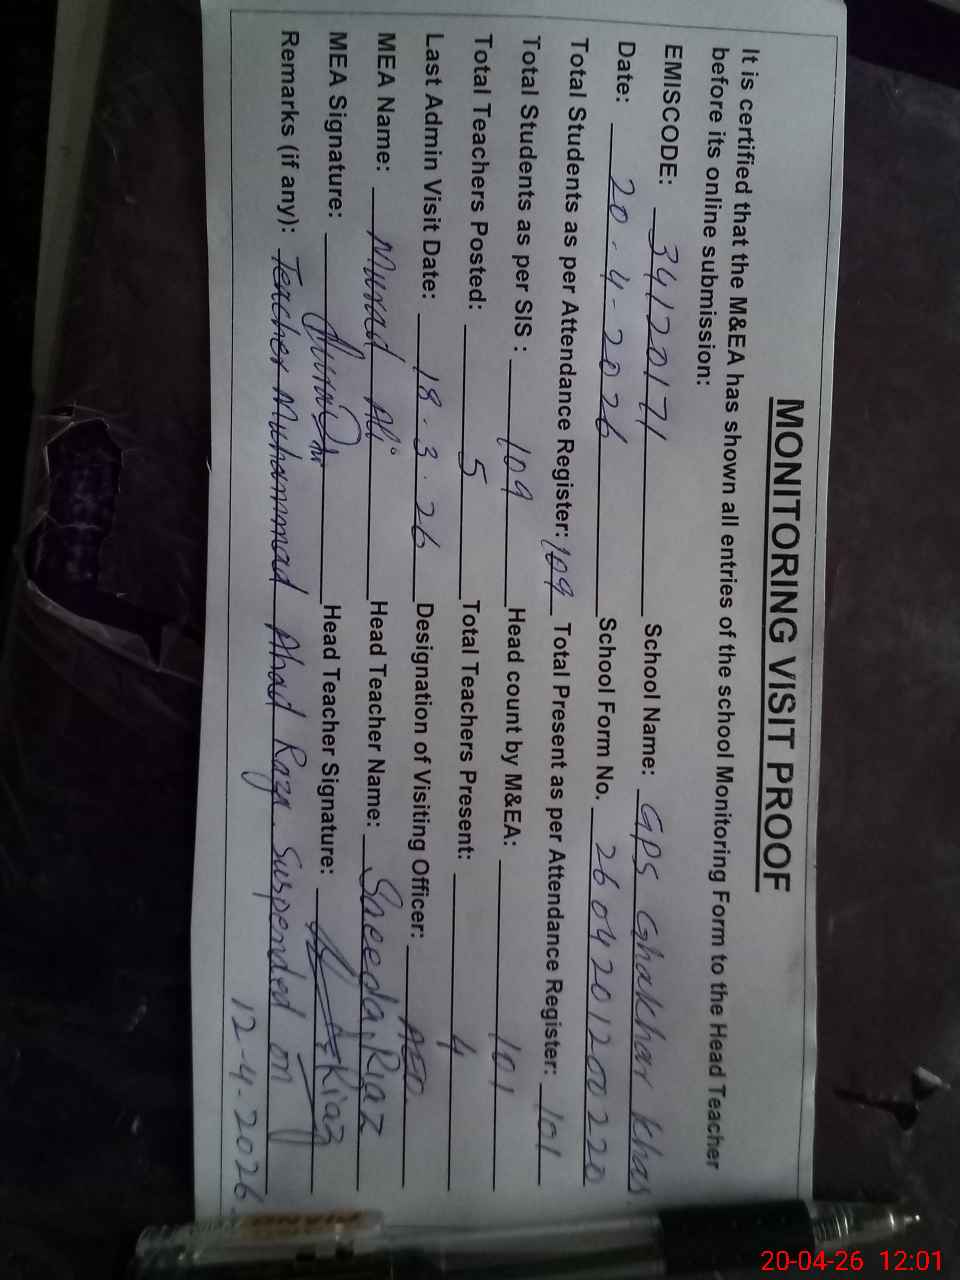 MONITORING VISIT PROOF
It is certified that the M&EA has shown all entries of the school Monitoring Form to the Head Teacher
before its online submission:
EMISCODE: 34120171 School Name: GPS Ghakhar Khas
Date: 20-4-2026 School Form No. 2604201200220
Total Students as per Attendance Register: 109 Total Present as per Attendance Register: 101
Total Students as per SIS : 109 Head count by M&EA: 101
Total Teachers Posted: 5 Total Teachers Present: 4
Last Admin Visit Date: 18.3.26 Designation of Visiting Officer: AEO
MEA Name: Murad Ali Head Teacher Name: Saeeda Riaz
MEA Signature: Head Teacher Signature: Riaz
Remarks (if any): Teacher Muhammad Ahad Raza suspended on
12-4-2026.
20-04-26 12:01